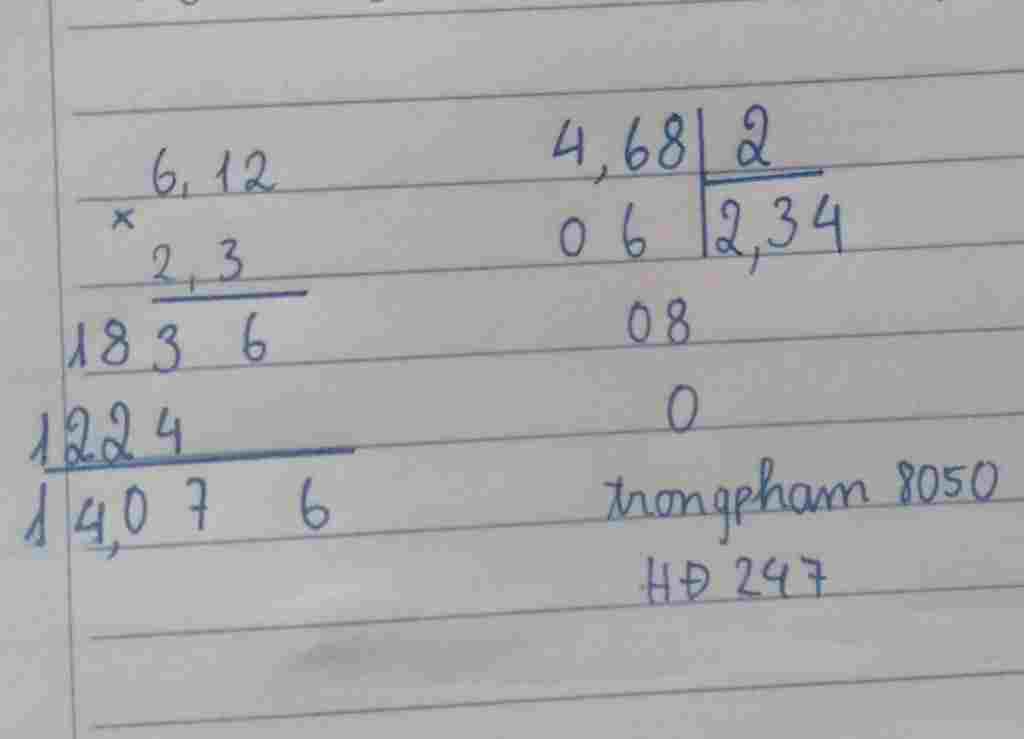 6,12
×
2,3
183 6
1224
14,07 6
4,68 2
06 2,34
08
0
trongpham 8050
HĐ 247